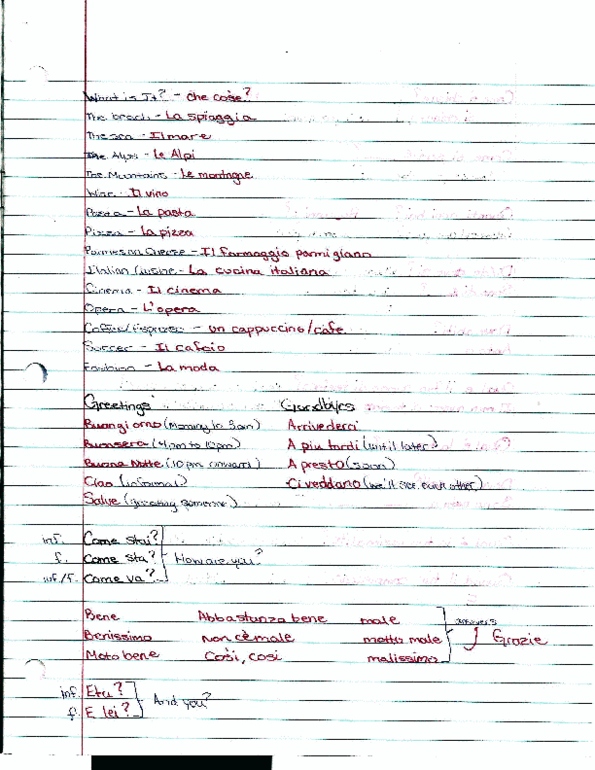 What is It? - che cose?
The beach - La spiaggia
The sea - Il mare
The Alps - Le Alpi
The Mountains - Le montagne
Wine - Il vino
Pasta - La pasta
Pizza - La pizza
Parmesan Cheese - Il formaggio parmigiano
Italian Cuisine - La cucina italiana
Cinema - Il cinema
Opera - L'opera
Coffee/Espresso - un cappuccino/cafe
Soccer - Il calcio
Fashion - La moda
Greetings Goodbyes
Buongiorno (Morning to 5am) Arrivederci
Buonsera (4pm to 10pm) A piu tardi (until later)
Buona Notte (10pm onward) A presto (soon)
Ciao (informal) Ci veddano (we'll see each other)
Salve (greeting someone)
inf. Come stai?
f. Come sta? How are you?
inf/f. Come va?
Bene Abbastanza bene male answers
Benissimo non cè male motto male Grazie
Moto bene Così, così malissimo
inf. E tu? And you?
f. E lei?